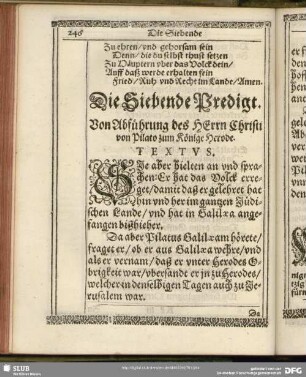 246 Die Siebende
Zu ehren/vnd gehorsam sein
Denn/die du selbst thust setzen
Zu Häuptern vber das Volck dein/
Auff daß werde erhalten sein
Fried/Ruh vnd Recht im Lande/Amen.
Die Siebende Predigt.
Von Abführung des HErrn Christi
von Pilato zum Könige Herode.
TEXTVS.
SIe aber hielten an vnd spra-
chen: Er hat das Volck erre-
get/damit daß er gelehret hat
hin vnd her im gantzen Jüdi-
schen Lande/vnd hat in Galilæa ange-
fangen bißhieher.
Da aber Pilatus Galilæam hörete/
fraget er/ob er aus Galilæa wehre/vnd
als er vernam/daß er vnter Herodes O-
brigkeit war/vbersande er jn zu Herodes/
welcher in denselbigen Tagen auch zu Je-
rusalem war.
Da
SLUB
DFG